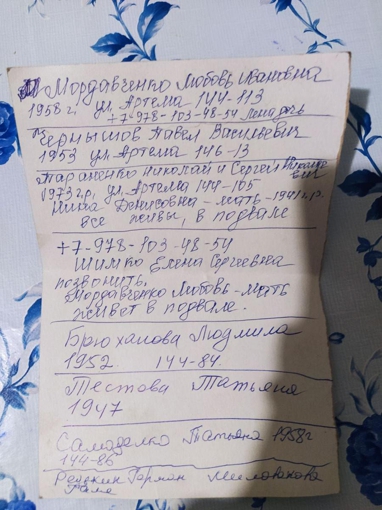 Мордавченко Любовь Ивановна
1958 г, ул. Артема 144-113
+7-978-103-48-54
Чернышов Павел Васильевич
1953 ул. Артема 146-13
Тараненко Николай и Сергей
1973 г.р, ул. Артема 144-105
Нина Денисовна - мать - 1941 г.р.
все живы, в подвале
+7-978-103-48-54
Шимко Елена Сергеевна
позвонить,
Мордавченко Любовь - мать
живет в подвале.
Брюханова Людмила
1952. 144-84
Тестова Татьяна
1947
Самоделко Татьяна 1958г
144-86
Редькин Герман Миловакова